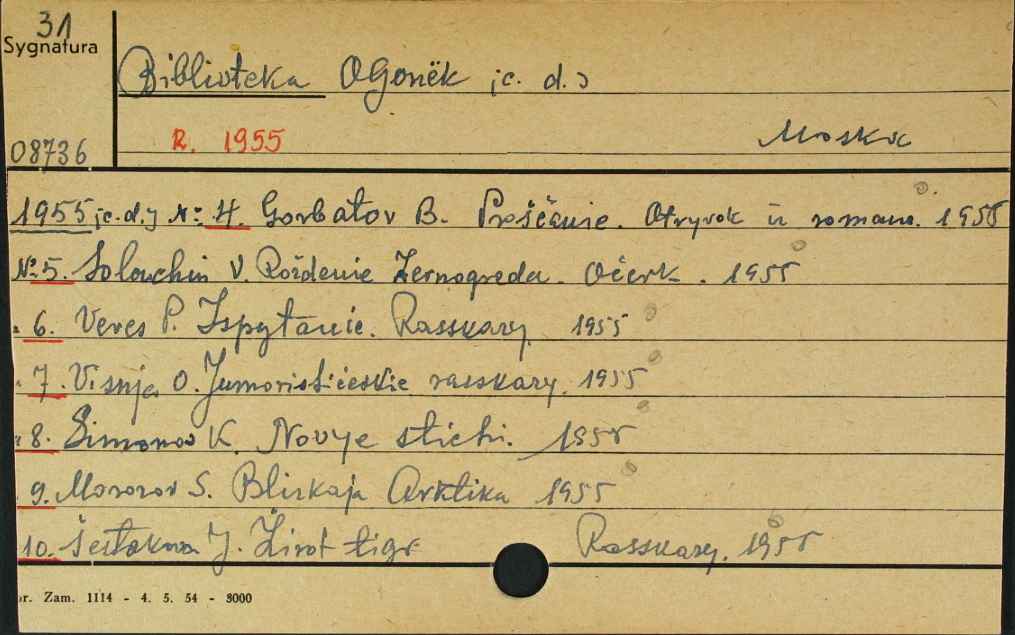 31
Sygnatura
Biblioteka Ogonëk /c. d./
08736
R. 1955 Moskva
1955 /c.d./ № 4. Gorbatov B. Proščanie. Otryvok iz romana. 1955
№ 5. Solouchin V. Roždenie Zernograda. Očerk. 1955
" 6. Veres P. Ispytanie. Rasskazy. 1955
" 7. Višnja O. Jumorističeskie rasskazy. 1955
" 8. Simonov K. Novye stichi. 1955
" 9. Morozov S. Blizkaja Arktika 1955
10. Šestakova J. Život tigr Rasskazy. 1955
r. Zam. 1114 - 4. 5. 54 - 8000